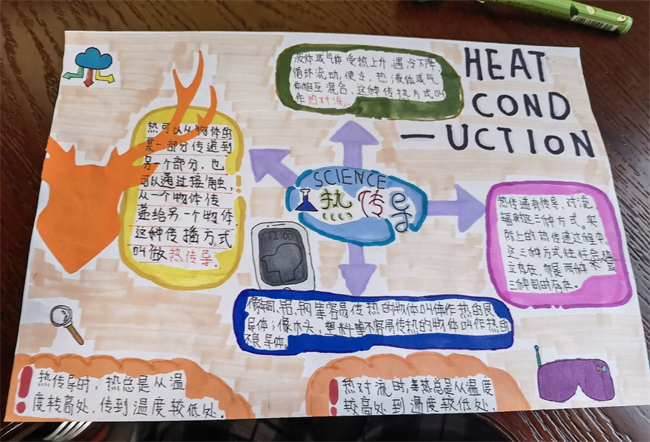 HEAT
COND
—UCTION
液体或气体受热上升,遇冷下降
循环流动,使冷、热液体或气
体相互混合,这种传热方式叫
作热对流
热可以从物体的
某一部分传递到
另一个部分,也
可以通过接触,
从一个物体传
递给另一个物体
这种传播方式
叫做热传导.
SCIENCE
热传导
12:00
热传递有传导、对流
辐射这三种方式。实
际上的热传递过程中
这三种方式往往
三种同时存在.
像铜、铝、钢等容易传热的物体叫作热的良
导体;像木头,塑料等不容易传热的物体叫作热的
不良导体。
热传导时,热总是从温
度较高处,传到温度较低处.
热对流时,热总是从温度
较高处到温度较低处,